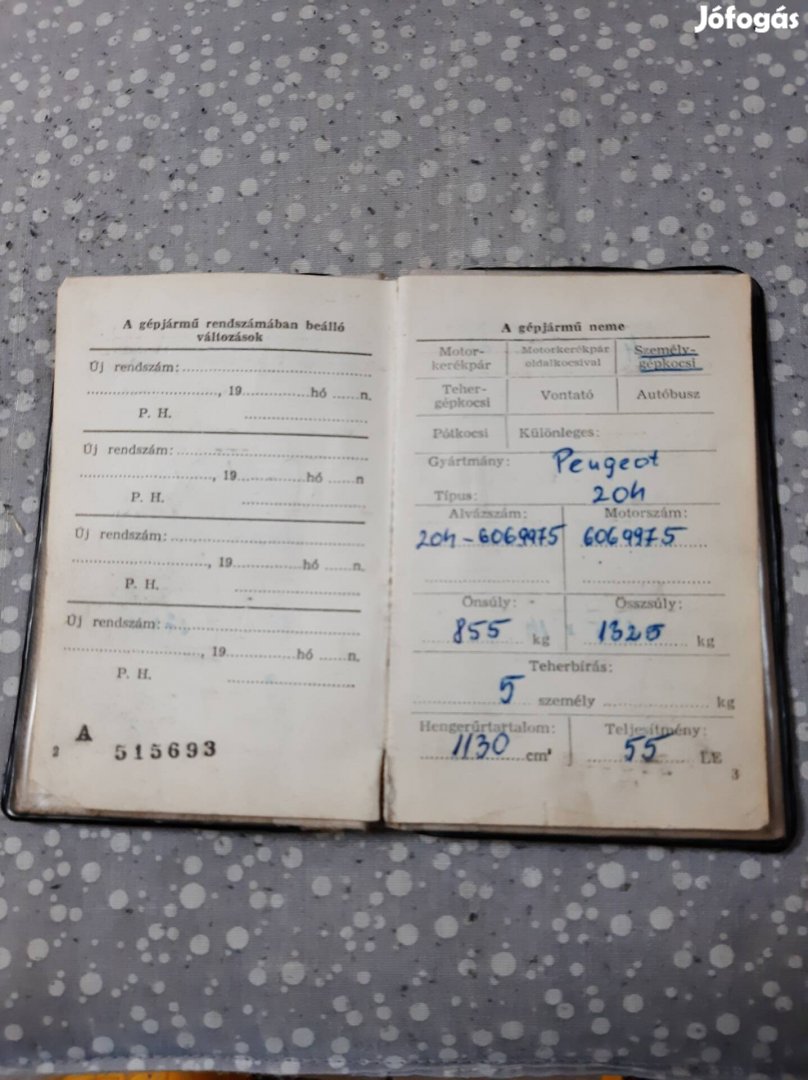 Jófogás
A gépjármű rendszámában beálló
változások
Új rendszám:
, 19 hó n.
P. H.
Új rendszám:
, 19 hó n
P. H.
Új rendszám:
, 19 hó n.
P. H.
Új rendszám:
, 19 hó n.
P. H.
A
2 515693
A gépjármű neme
Motor- Motorkerékpár Személy-
kerékpár oldalkocsival gépkocsi
Teher- Vontató Autóbusz
gépkocsi
Pótkocsi Különleges:
Gyártmány: Peugeot
Típus: 204
Alvázszám: Motorszám:
204-6069975 6069975
Önsúly: Összsúly:
855 kg 1325 kg
Teherbírás:
5 személy kg
Hengerűrtartalom: Teljesítmény:
1130 cm³ 55 LE
3